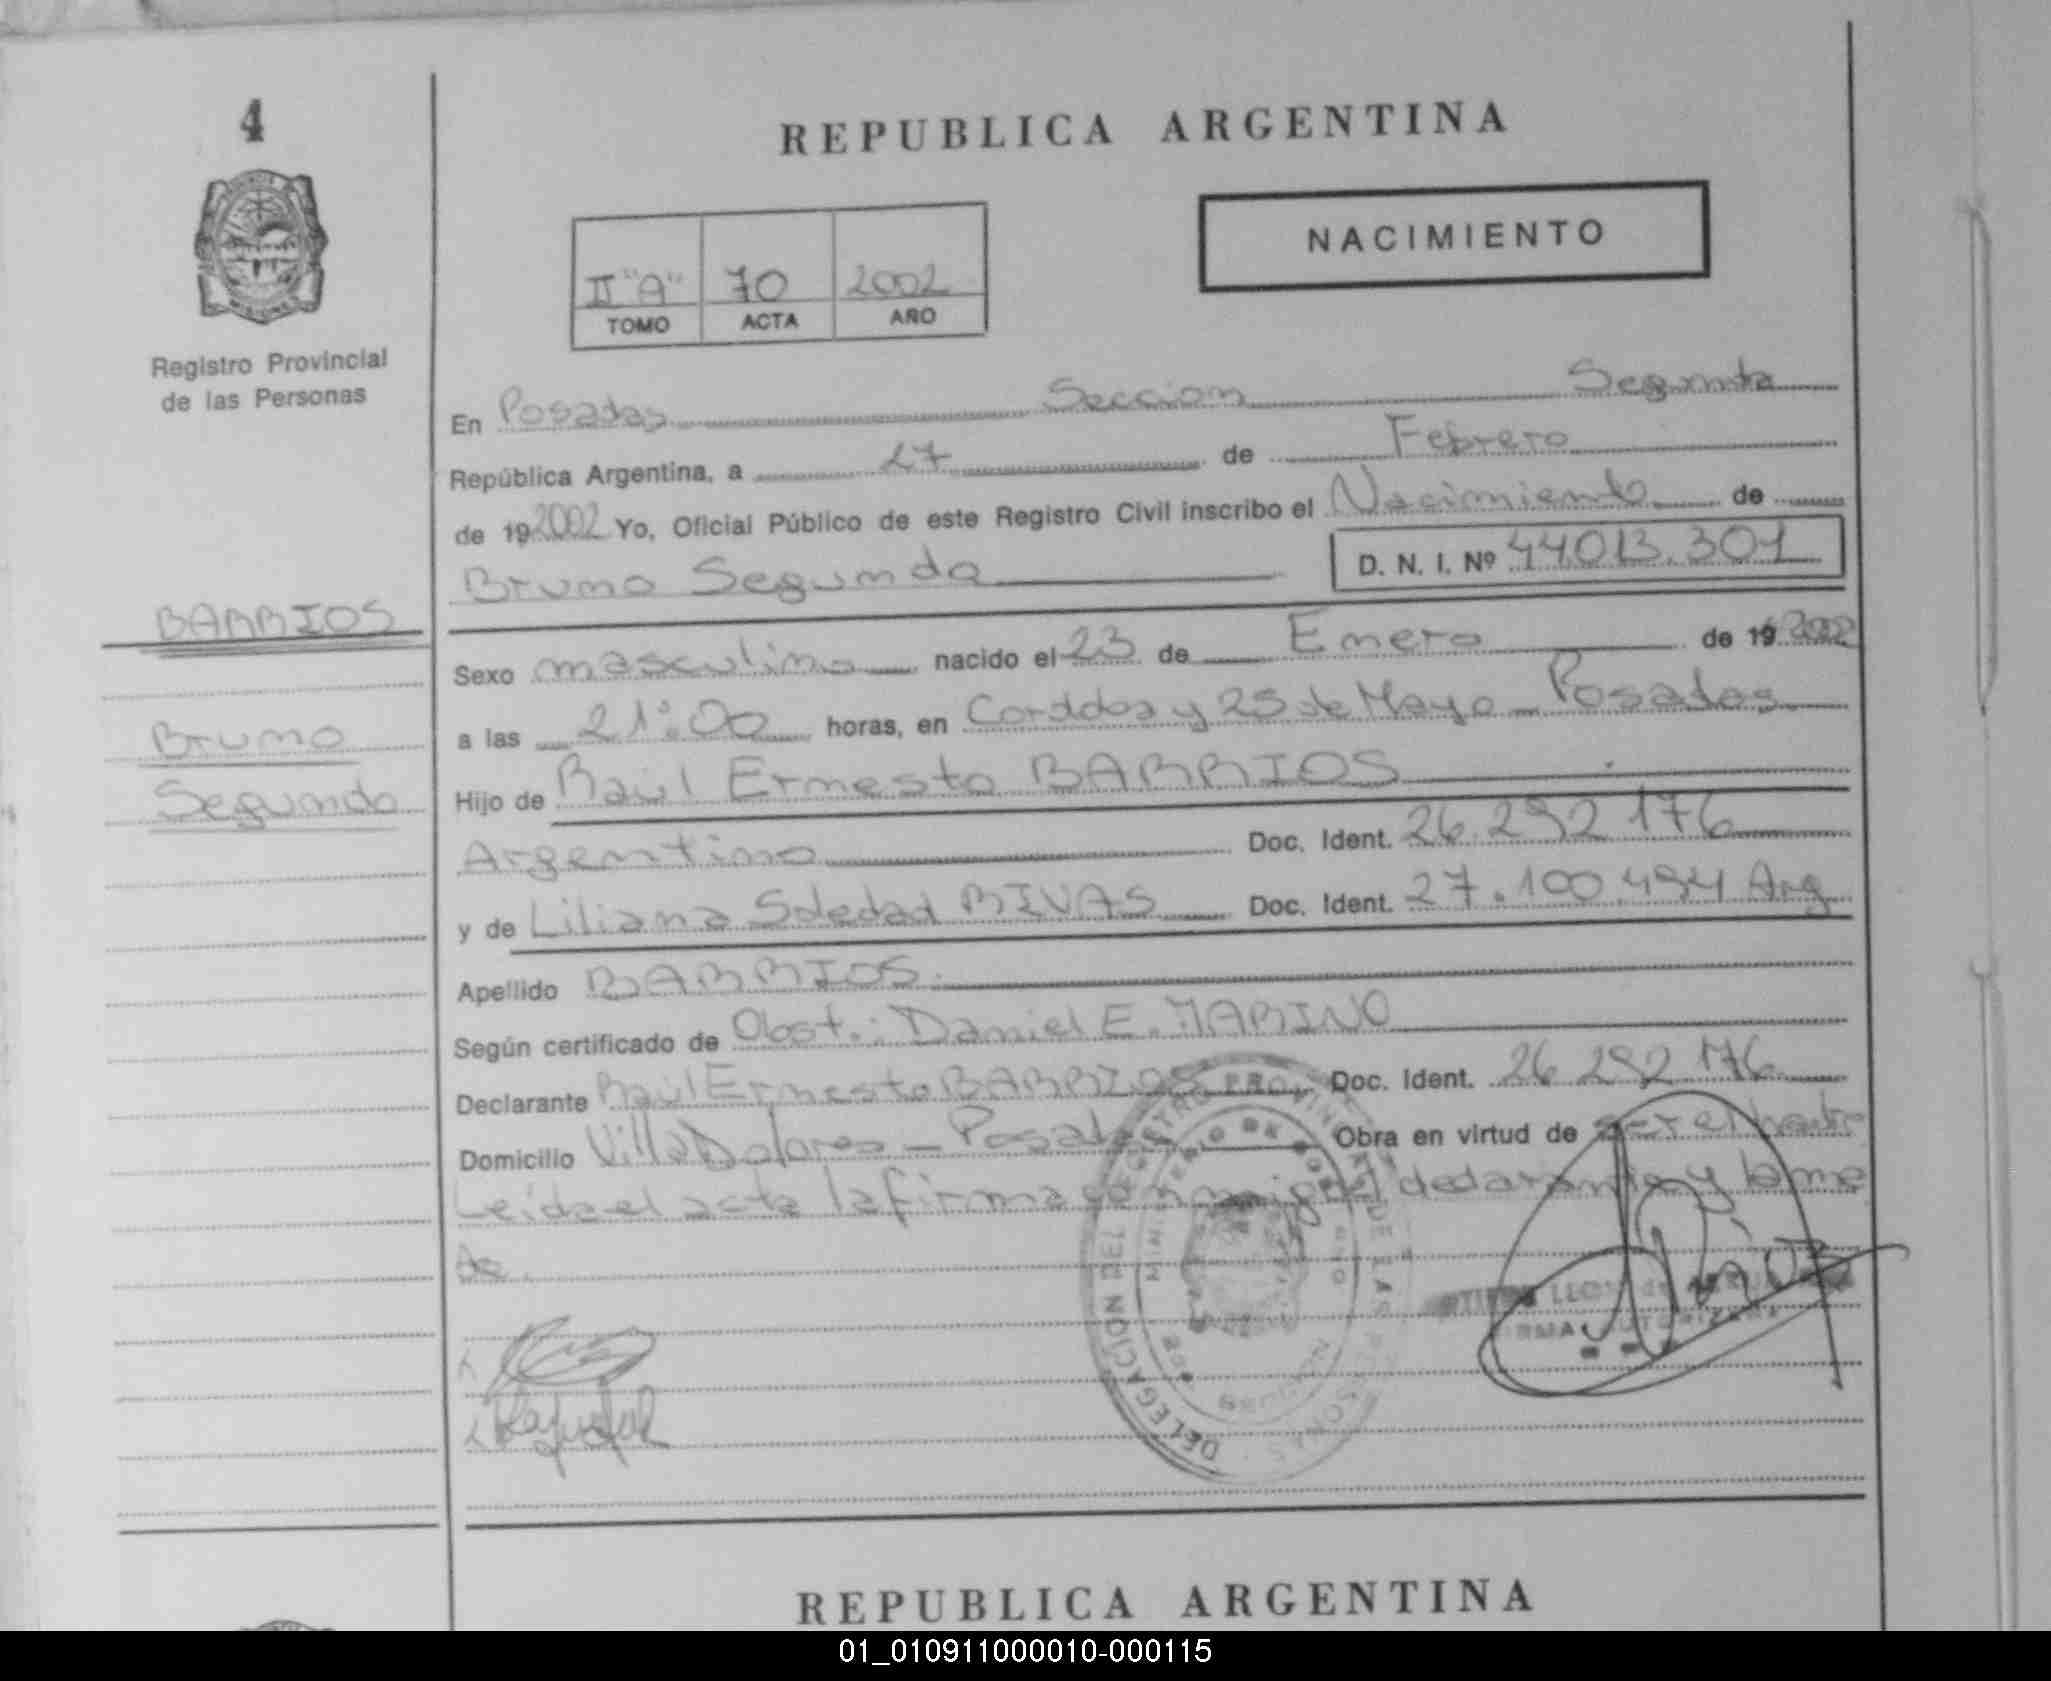 4
REPUBLICA ARGENTINA
NACIMIENTO
II "A" 70 2002
TOMO ACTA AÑO
Registro Provincial
de las Personas
En Posadas Seccion Segunda
República Argentina, a 27 de Febrero
de 19 2002 Yo, Oficial Público de este Registro Civil inscribo el Nacimiento de
Bruno Segundo D. N. I. Nº 44.013.301
BARRIOS
Bruno
Segundo
Sexo masculino nacido el 23 de Enero de 19 2002
a las 21:00 horas, en Cordoba y 25 de Mayo - Posadas
Hijo de Raúl Ernesto BARRIOS
Argentino Doc. Ident. 26.292.176
y de Liliana Soledad RIVAS Doc. Ident. 27.100.494 Arg
Apellido BARRIOS.
Según certificado de Obst.: Daniel E. MARINO
Declarante Raúl Ernesto BARRIOS Doc. Ident. 26 292 176
Domicilio Villa Dolores - Posadas Obra en virtud de ser el padre
Leida el acta la firma conmigo el declarante y la me
DELEGACIÓN DEL REGISTRO PROVINCIAL DE LAS PERSONAS
REPUBLICA ARGENTINA
01_010911000010-000115